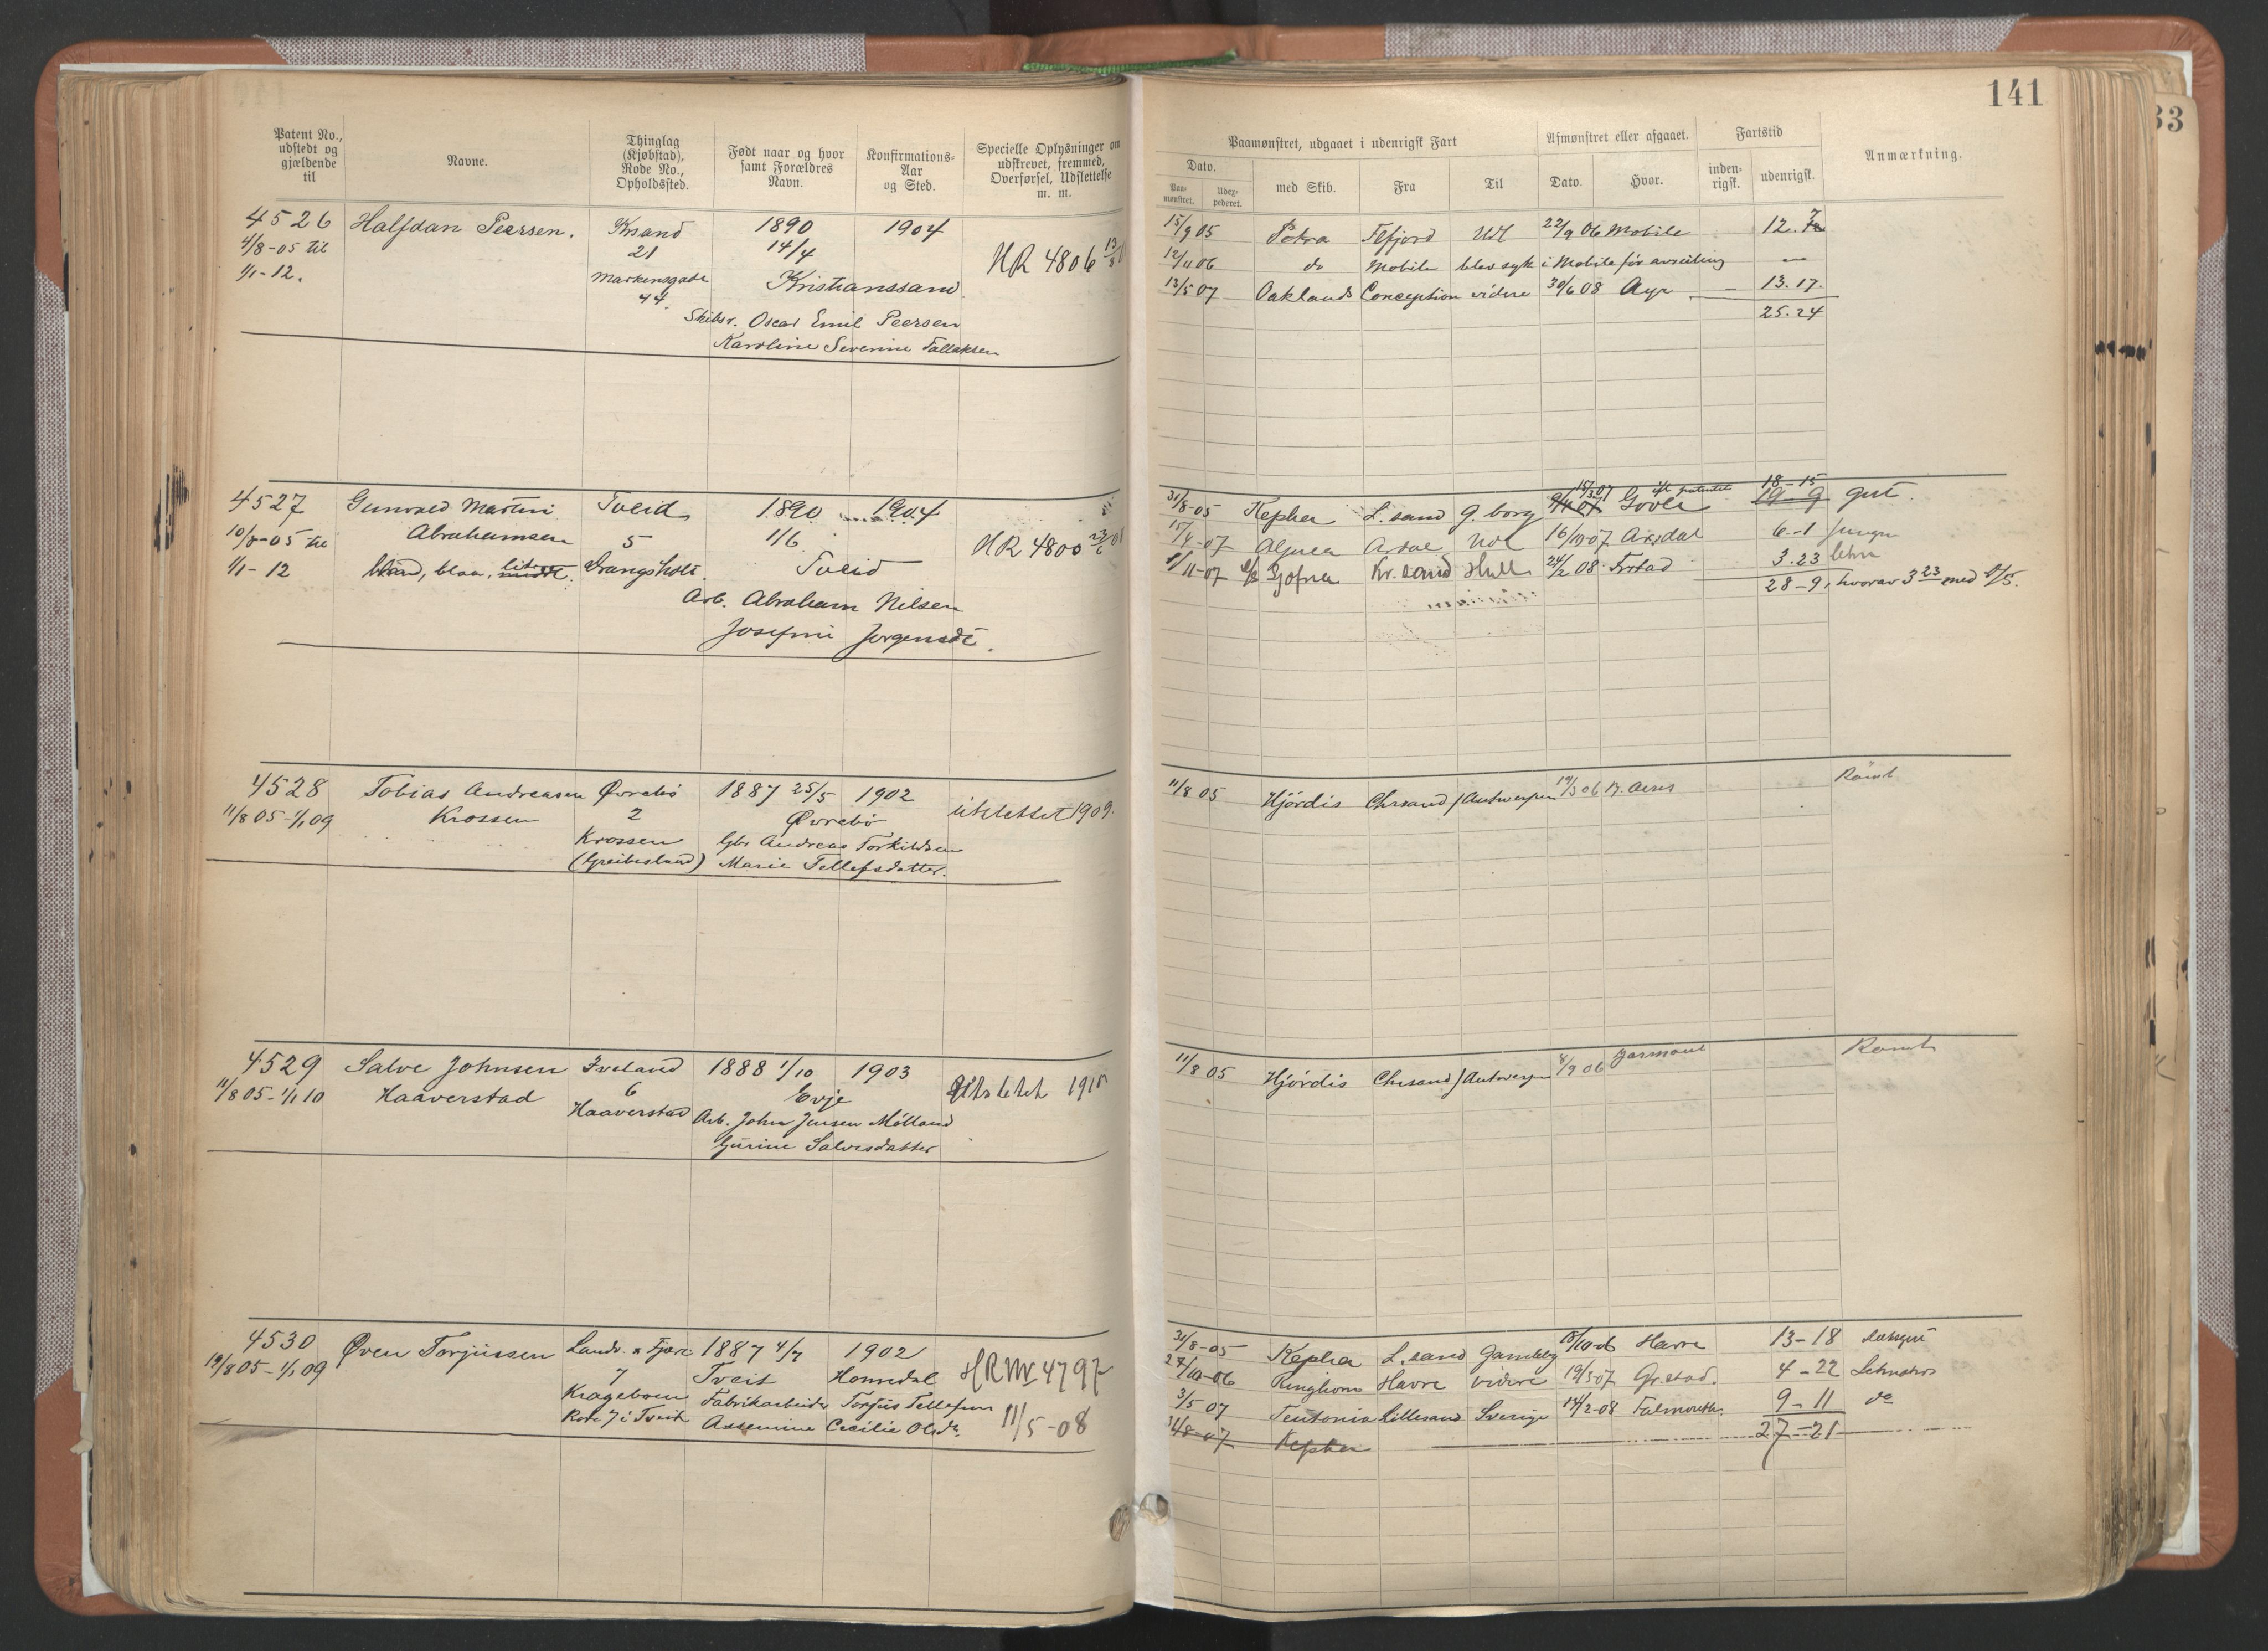 141
33
Patent No., udstedt og gjældende til
Navne.
Thinglag (Kjøbstad), Rode No., Opholdssted.
Født naar og hvor samt Forældres Navn.
Konfirmations-Aar og Sted.
Specielle Oplysninger om udskrevet, fremmed, Overførsel, Udslettelse m. m.
Paamønstret, udgaaet i udenrigsk Fart
Afmønstret eller afgaaet.
Fartstid
Anmærkning.
Dato.
Paa-mønstret.
med Skib.
Fra
Til
Dato.
Hvor.
inden-rigsk.
udenrigsk.
4526 Halfdan Peersen. Krsand 1890 1904
4/8-05 til 21 14/4 HR 4806 13/8
1/1-12. Markensgade Kristianssand.
44.
Skibsr. Oscar Emil Peersen
Karoline Severine Tallaksen
15/9 05 Petra Flfjord 22/9 06 Mobile 12.7
12/11 06 do Mobile blev syk i Mobile før avreising —
13/5 07 Oaklands Conception videre 30/6 08 Ayr — 13.17.
25.24
4527 Gunvald Martin Tveid 1890 1904
10/8-05 til Abrahamsen 5 1/6 HR 4800
1/1-12 blaa, Drangsholt. Tveid
Arb. Abraham Nilsen
Josefine Jørgensdt.
31/8-05 Kepha L.sand G.borg 15/3.07 18-15 19-9 gut.
07 16/10 07 Arendal 6-1 Jungm
11-07 Kr.sand Hull 24/2 08 3.23
28-9, hvorav 3 23 med
4528 Tobias Andreasen Øvrebø 1887 25/5 1902
11/8 05-1/1 09 Krossen 2 Øvrebø utslettet 1909.
Krossen Gbr Andreas Torkildsen
(Greibesland) Marie Tellefsdatter.
11/8 05 Hjørdis Chrsand / Antwerpen 19/3 06 B. Aires Rømt
4529 Salve Johnsen Iveland 1888 1/10 1903
11/8 05-1/1 10 Haaverstad 6 Evje utslettet 1910
Haaverstad Arb. John Jensen Mölland
Gurine Salvesdatter
11/8 05 Hjørdis Chrsand / Antwerpen 8/9 06 Rømt
4530 Øven Torjussen Landv. & Fjære 1887 4/7 1902
19/8 05-1/1 09 7 Tveit Homedal HR Nr 4797
Krageboen Fabrikarbeider Torjus Tellefsen
Rode 7 i Tveit Assemine Cecilie Olsdt. 11/5-08
31/8-05 Kepha L.sand Havre 13-18
24/10-06 Ringhorn Havre videre 19/3 07 Gr.stad. 4-22
3/5 07 Teutonia Lillesand Sverige 14/2-08 Falmouth. 9-11 do
31/8-07 Kepha 27-21